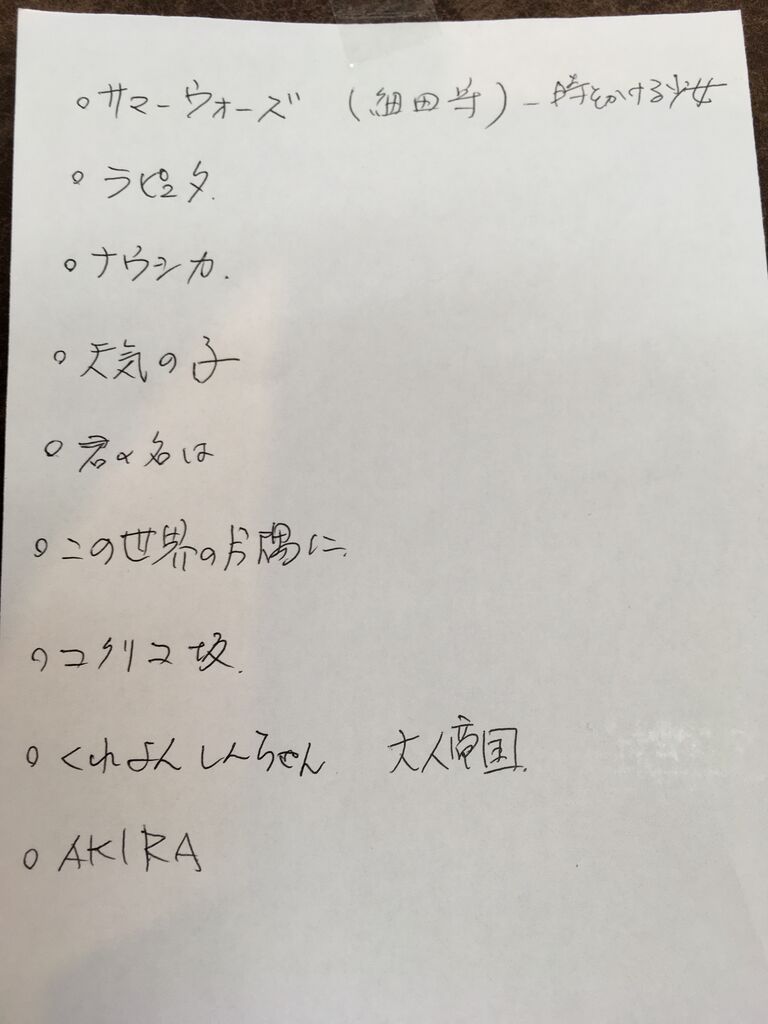 ○サマーウォーズ (細田守) - 時をかける少女
○ラピュタ.
○ナウシカ.
○天気の子
○君の名は
○この世界の片隅に.
○コクリコ坂.
○くれよんしんちゃん 大人帝国.
○AKIRA